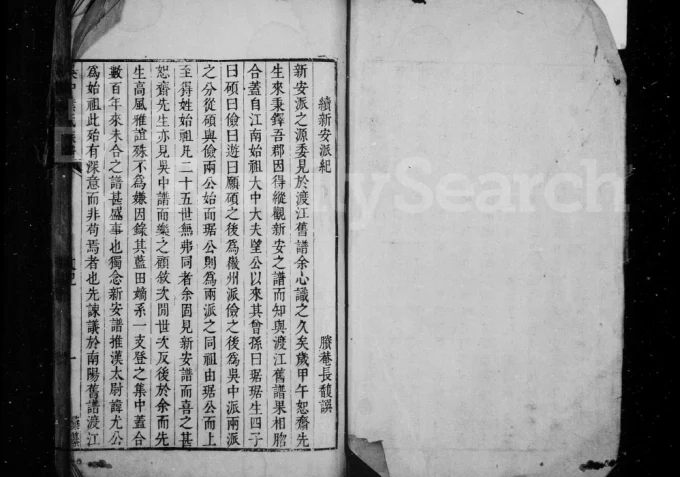 續新安派紀
賸菴長馥譔
新安派之源委見於渡江舊譜余心識之久矣歲甲午恕齋先
生來秉鐸吾郡因得縱觀新安之譜而知與渡江舊譜果相脗
合蓋自江南始祖大中大夫望公以來其曾孫曰琚琚生四子
曰碩曰儉曰遊曰願碩之後為徽州派儉之後為吳中派兩派
之分從碩與儉兩公始而琚公則為兩派之同祖由琚公而上
至得姓始祖凡二十五世無弗同者余固見新安譜而喜之甚
恕齋先生亦見吳中譜而樂之顧敘次間世次反後於余而先
生高風雅誼殊不為嫌因錄其藍田嫡系一支登之集中蓋合
數百年來未合之譜甚盛事也獨念新安譜推漢太尉諱尤公
為始祖此殆有深意而非苟焉者也先諫議於南陽舊譜渡江
MySearch